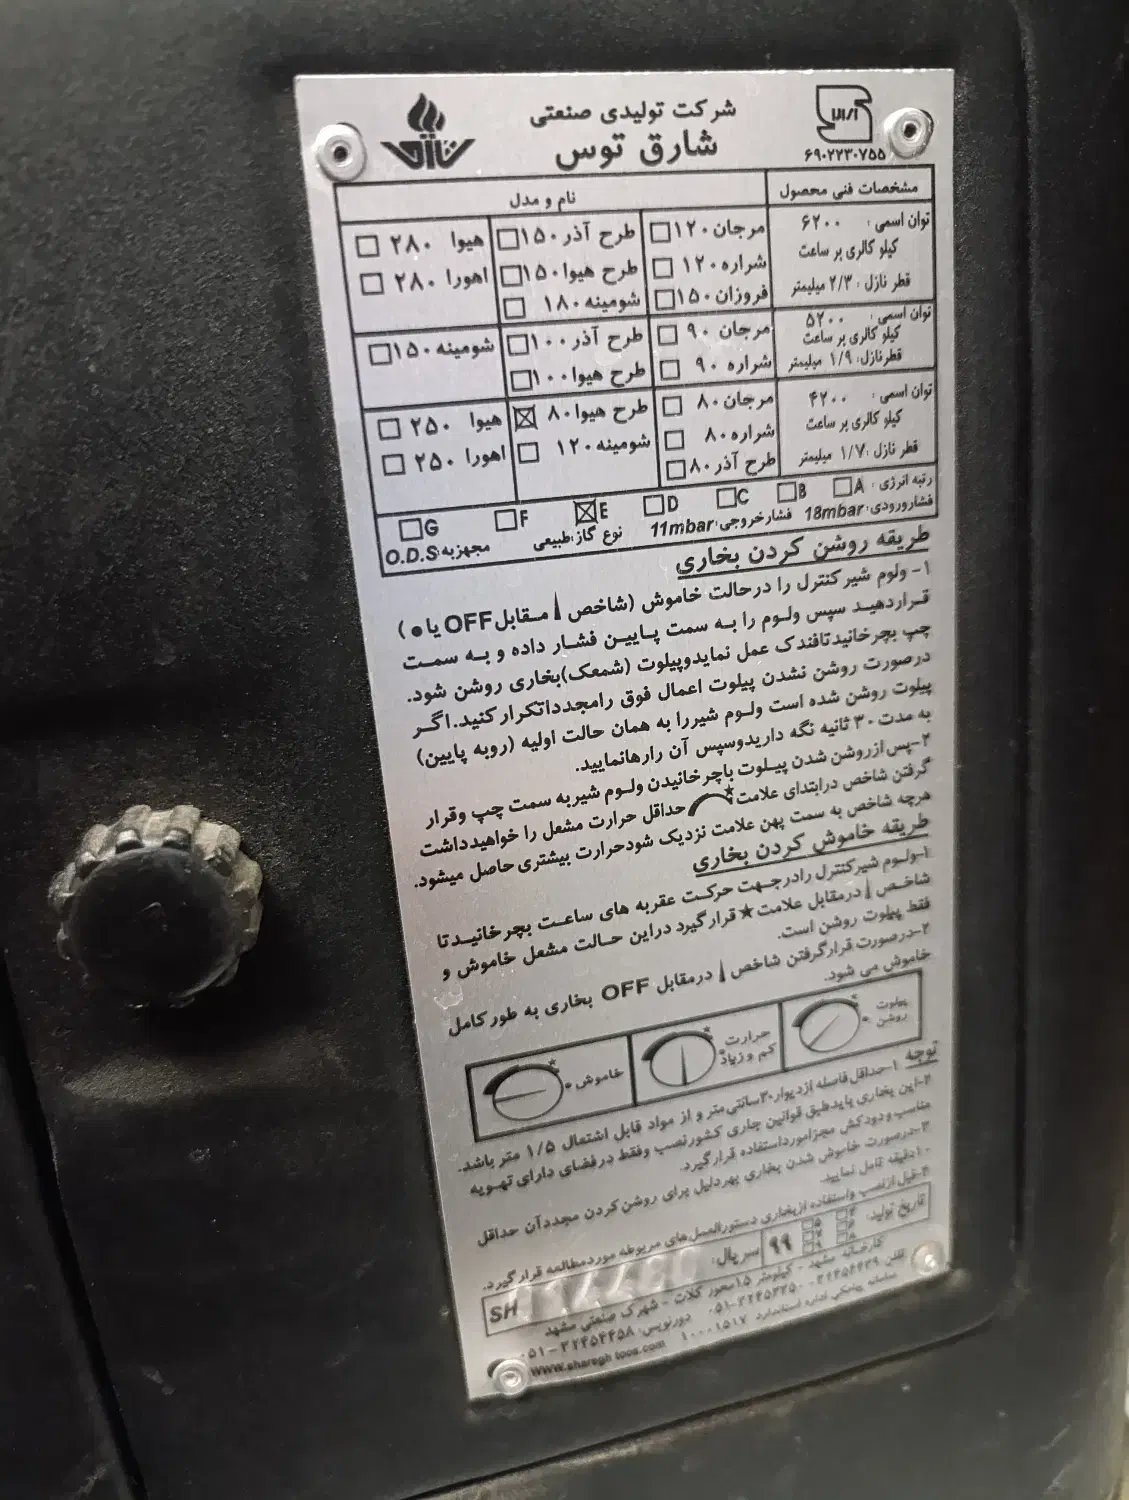 شرکت تولیدی صنعتی
شارق توس
۶۹۰۲۲۳۰۷۵۵
مشخصات فنی محصول
نام و مدل
توان اسمی : ۶۲۰۰
کیلو کالری بر ساعت
قطر نازل : ۲/۳ میلیمتر
مرجان ۱۲۰ طرح آذر ۱۵۰ هیوا ۲۸۰
شراره ۱۲۰ طرح هیوا ۱۵۰ اهورا ۲۸۰
فروزان ۱۵۰ شومینه ۱۸۰
توان اسمی : ۵۲۰۰
کیلو کالری بر ساعت
قطر نازل : ۱/۹ میلیمتر
مرجان ۹۰ طرح آذر ۱۰۰ شومینه ۱۵۰
شراره ۹۰ طرح هیوا ۱۰۰
توان اسمی : ۴۲۰۰
کیلو کالری بر ساعت
قطر نازل : ۱/۷ میلیمتر
مرجان ۸۰ طرح هیوا ۸۰ هیوا ۲۵۰
شراره ۸۰ شومینه ۱۲۰ اهورا ۲۵۰
طرح آذر ۸۰
رتبه انرژی : A B C D E F G
فشار ورودی: 18mbar فشار خروجی: 11mbar نوع گاز: طبیعی مجهز به: O.D.S
طریقه روشن کردن بخاری
۱- ولوم شیر کنترل را در حالت خاموش (شاخص مقابل OFF یا ●)
قرار دهید سپس ولوم را به سمت پایین فشار داده و به سمت
چپ بچرخانید تا فندک عمل نماید و پیلوت (شمعک) بخاری روشن شود.
درصورت روشن نشدن پیلوت اعمال فوق را مجددا تکرار کنید. اگر
پیلوت روشن شده است ولوم شیر را به همان حالت اولیه (رو به پایین)
به مدت ۳۰ ثانیه نگه دارید و سپس آن را رها نمایید.
۲- پس از روشن شدن پیلوت با چرخانیدن ولوم شیر به سمت چپ و قرار
گرفتن شاخص در ابتدای علامت ★ حداقل حرارت مشعل را خواهید داشت
هرچه شاخص به سمت پهن علامت نزدیک شود حرارت بیشتری حاصل میشود.
طریقه خاموش کردن بخاری
۱- ولوم شیر کنترل را در جهت حرکت عقربه های ساعت بچرخانید تا
شاخص در مقابل علامت ★ قرار گیرد در این حالت مشعل خاموش و
فقط پیلوت روشن است.
۲- درصورت قرار گرفتن شاخص در مقابل OFF بخاری به طور کامل
خاموش می شود.
پیلوت روشن
حرارت کم و زیاد
خاموش
توجه
۱- حداقل فاصله از دیوار ۳۰ سانتی متر و از مواد قابل اشتعال ۱/۵ متر باشد.
۲- این بخاری باید طبق قوانین جاری کشور نصب و فقط در فضای دارای تهویه
مناسب و دودکش مجزا مورد استفاده قرار گیرد.
۳- درصورت خاموش شدن بخاری بهر دلیل برای روشن کردن مجدد آن حداقل
۱۰ دقیقه تامل نمایید.
۴- قبل از نصب و استفاده از بخاری دستورالعمل های مربوطه مورد مطالعه قرار گیرد.
تاریخ تولید: ۹۹ سریال: SH
کارخانه مشهد - کیلومتر ۱۵ محور کلات - شهرک صنعتی مشهد
دورنویس: ۳۲۴۵۴۴۵۸-۰۵۱
سامانه پیامکی اداره استاندارد ۱۰۰۰۱۵۱۷
www.sharegh-toos.com